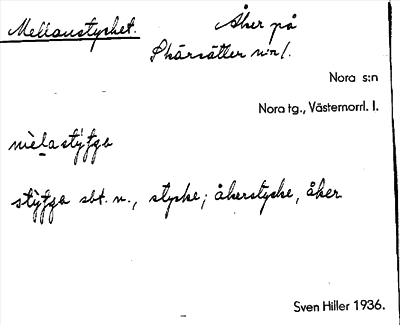 Mellanstycket.
Åker på
Skärsätter n:r 1.
Nora s:n
Nora tg., Västernorrl. l.
stycke; åkerstycke, åker
Sven Hiller 1936.